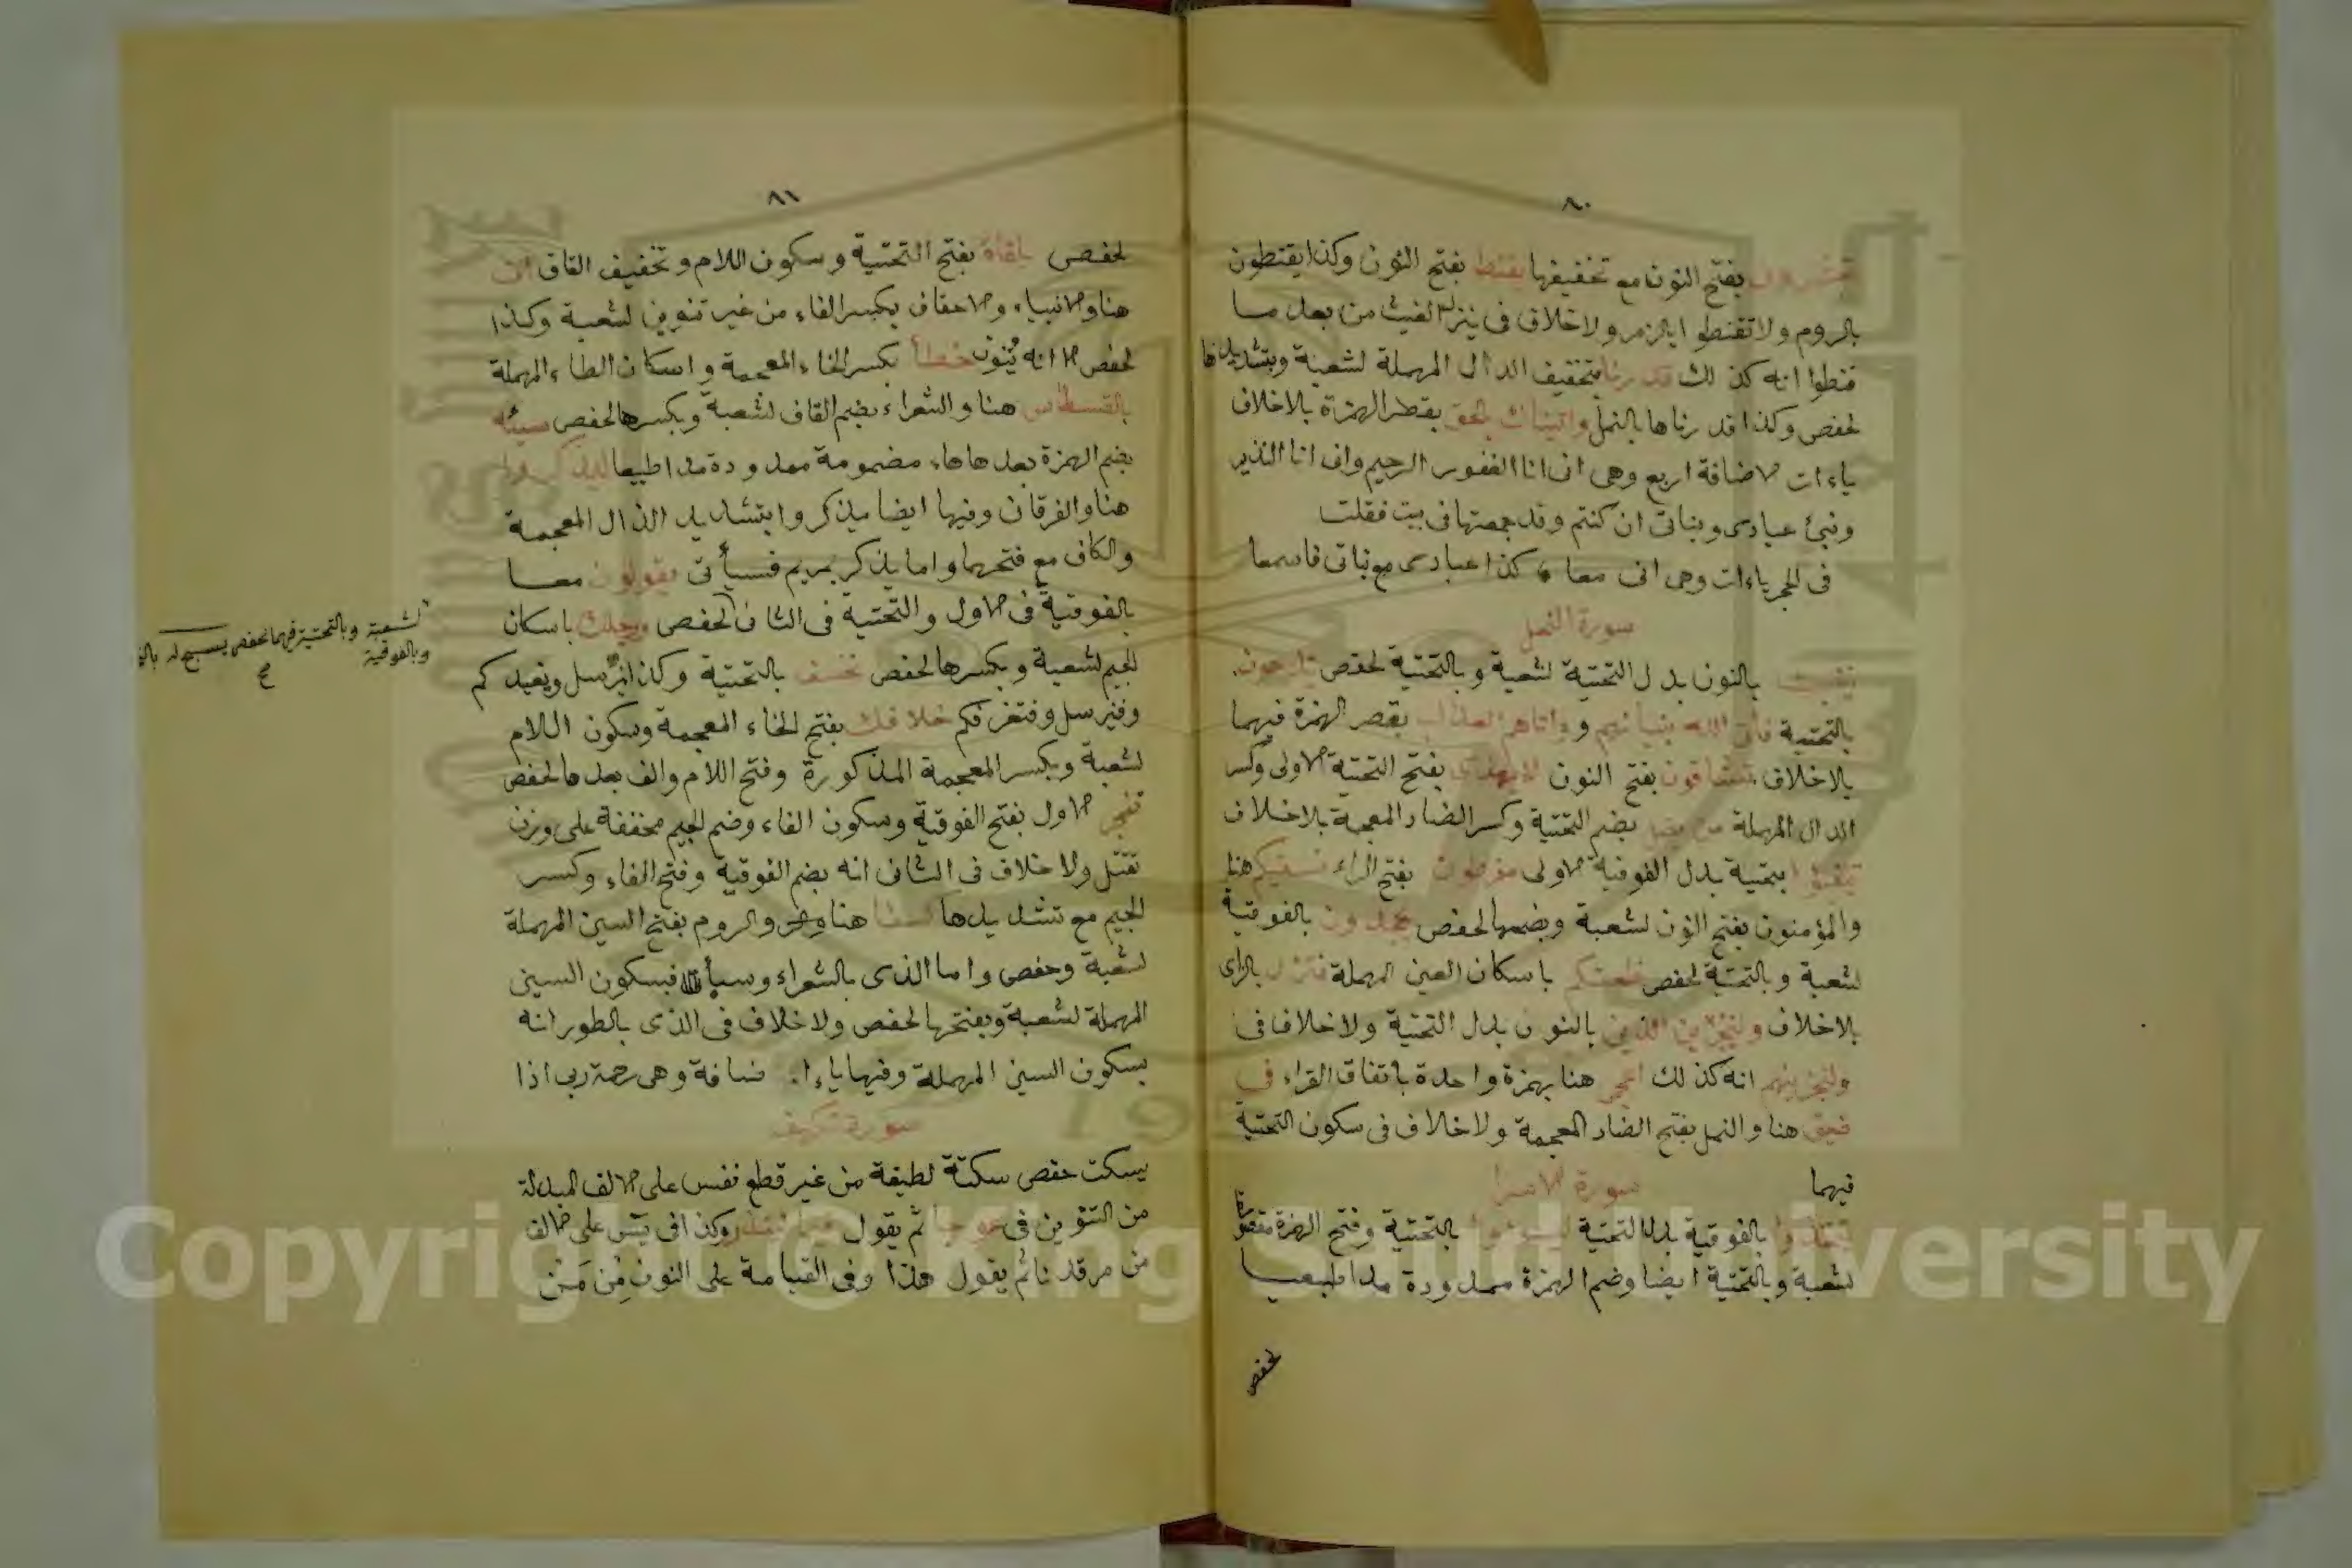 ٨٠
تبشرون بفتح النون مع تخفيفها يقنط بفتح النون وكذا يقنطون
بالروم ولا تقنطوا بالزمر ولا خلاف فى ينزل الغيث من بعد ما
قنطوا انه كذلك قدرنا بتخفيف الدال المهملة لشعبة وبتشديدها
لحفص وكذا قدرناها بالنمل واتيناك بالحق بقصر الهمزة بلا خلاف
ياءات الاضافة اربع وهى انى انا الغفور الرحيم وانى انا النذير
ونبئ عبادى وبناتى ان كنتم وقد جمعتها فى بيت فقلت
فى الحجر ياءات وهى انى معا كذا عبادى مع بناتى فاسمعا
سورة النحل
ننبت بالنون بدل التحتية لشعبة وبالتحتية لحفص يدعون
بالتحتية فأتى الله بنيانهم و واتاهم العذاب بقصر الهمزة فيهما
بلا خلاف تشاقون بفتح النون لا يهدى بفتح التحتية الاولى وكسر
الدال المهملة من يضل بضم التحتية وكسر الضاد المعجمة بلا خلاف
يتفيؤا بتحتية بدل الفوقية الاولى مفرطون بفتح الراء نسقيكم هنا
والمؤمنون بفتح النون لشعبة وبضمها لحفص يجحدون بالفوقية
لشعبة وبالتحتية لحفص ظعنكم باسكان العين المهملة فتزل بالزاى
بلا خلاف ولنجزين الذين بالنون بدل التحتية ولا خلاف فى
ولنجزينهم انه كذلك هنا بهمزة واحدة باتفاق القراء فى
ضيق هنا والنمل بفتح الضاد المعجمة ولا خلاف فى سكون التحتية
فيهما سورة الاسرا
تتخذوا بالفوقية بدل التحتية ليسوءوا بالتحتية وفتح الهمزة مقصورة
لشعبة وبالتحتية ايضا وضم الهمزة ممدودة مدا طبيعيا
لحفص
٨١
لحفص يلقاه بفتح التحتية وسكون اللام وتخفيف القاف اف
هنا والانبياء والاحقاف بكسر الفاء من غير تنوين لشعبة وكذا
لحفص الا انه يُنَوّن خطأ بكسر الخاء المعجمة واسكان الطاء المهملة
بالقسطاس هنا والشعراء بضم القاف لشعبة وبكسرها لحفص سيئه
بضم الهمزة بعدها هاء مضمومة ممدودة مدا طبيعيا ليذكروا
هنا والفرقان وفيها ايضا يذكروا بتشديد الذال المعجمة
والكاف مع فتحهما واما يذكر بمريم فسيأتى يقولون معا
بالفوقية فى الاول والتحتية فى الثانى لحفص ورجلك باسكان
الجيم لشعبة وبكسرها لحفص نخسف بالتحتية وكذا نرسل ونعيدكم
وفنرسل وفنغرقكم خلافك بفتح الخاء المعجمة وسكون اللام
لشعبة وبكسر المعجمة المذكورة وفتح اللام والف بعدها لحفص
تفجر الاول بفتح الفوقية وسكون الفاء وضم الجيم مخففة على وزن
تقتل ولا خلاف فى الثانى انه بضم الفوقية وفتح الفاء وكسر
الجيم مع تشديدها كسفا هنا والروم بفتح السين المهملة
لشعبة وحفص واما الذى بالشعراء وسبأ فبسكون السين
المهملة لشعبة وبفتحها لحفص ولا خلاف فى الذى بالطور انه
بسكون السين المهملة وفيها ياء اضافة وهى رحمة ربى اذا
سورة الكهف
يسكت حفص سكتة لطيفة من غير قطع نفس على الالف المبدلة
من التنوين فى عوجا ثم يقول قيما لينذر وكذا فى يس على الالف
من مرقدنا ثم يقول هذا وفى القيامة على النون مِن مَن
لشعبة وبالتحتية فيهما لحفص يسبح له
وبالفوقية
Copyright © King Saud University